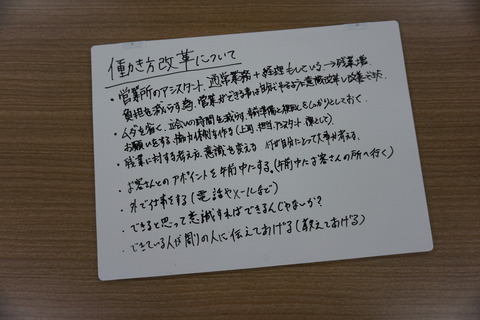 働き方改革について
・営業所のアシスタント、通常業務+経理もしている→残業増
負担を減らす為、営業ができる事は自分でやるよう意識改革し改善できた。
・ムダを省く、立会いの時間を減らす、事前準備と根回しをしっかりとしておく
お願いをする、協力体制を作る(上司、担当、アシスタント、
・残業に対する考え方、意識を変える 何が自分にとって大事か考える。
・お客さんとのアポイントを午前中にする。(午前中にお客さんの所へ行く)
・外で仕事をする(電話やメールなど)
・できると思って意識すればできるんじゃないか?
・できている人が周りの人に伝えてあげる(教えてあげる)